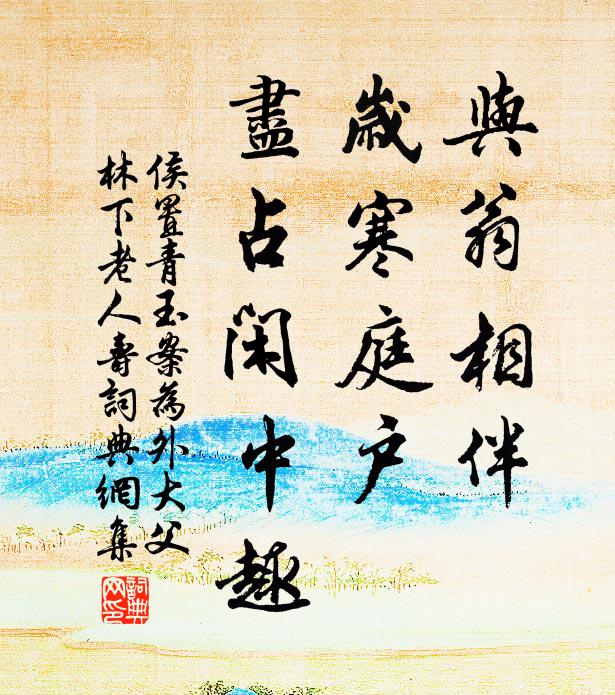 與翁相伴
歲寒庭户
盡占閑中趣
侯置青玉案為外大父
林下老人壽詞典網集
詞典
网印